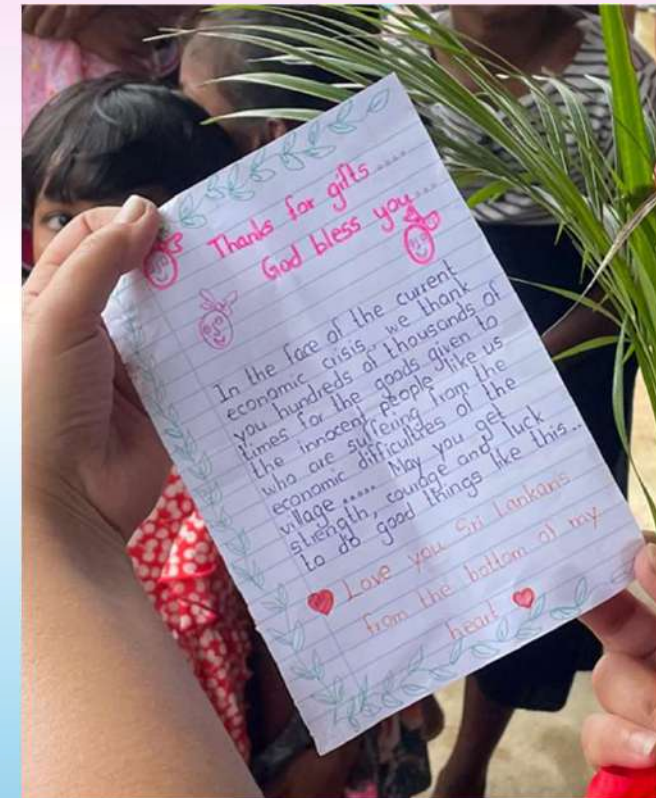 Thanks for gifts.....
God bless you....
In the face of the current
economic crisis, we thank
you hundreds of thousands of
times for the goods given to
the innocent people like us
who are suffering from the
economic difficulties of the
village ..... May you get
strength, courage and luck
to do good things like this..
Love you Sri Lankans
from the bottom of my
heart